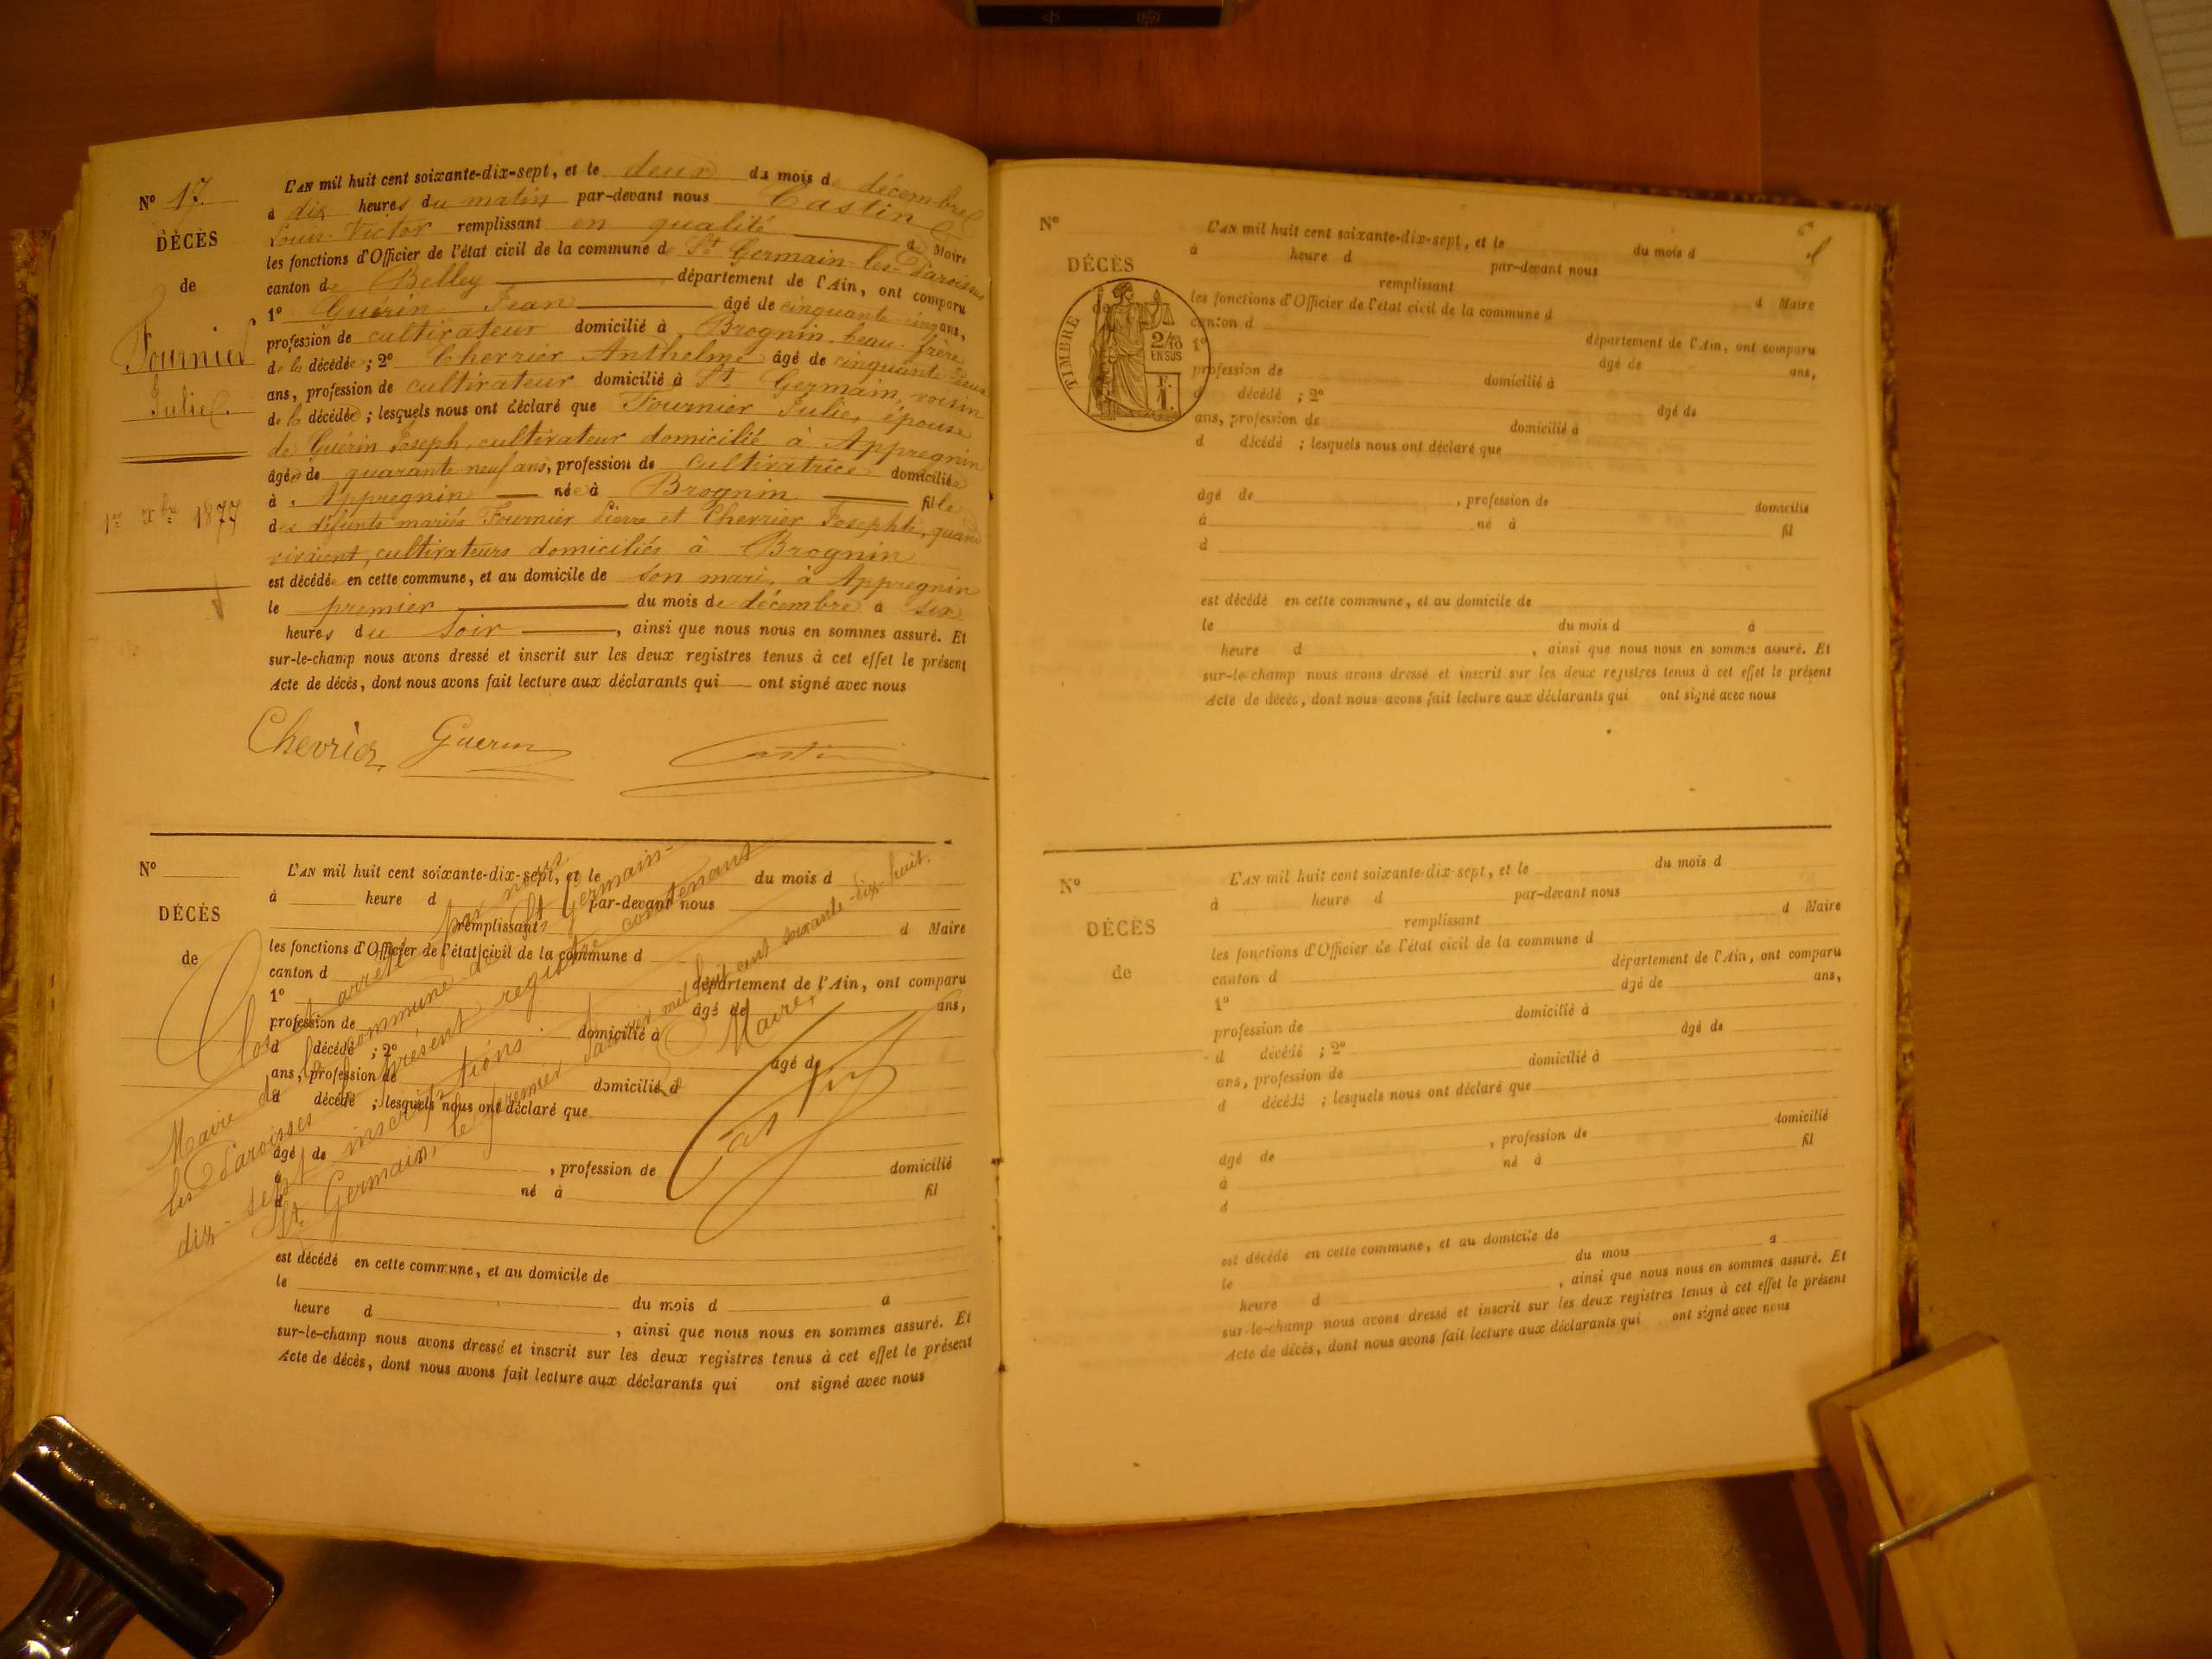 N° 17.
DÉCÈS
de
Fournier
Julie.
1er Xbre 1877
L'AN mil huit cent soixante-dix-sept, et le deux du mois de décembre
à dix heures du matin par-devant nous Castin
Louis-Victor remplissant en qualité de Maire
les fonctions d'Officier de l'état civil de la commune de St Germain-les-Paroisses
canton de Belley département de l'Ain, ont comparu
1° Guérin Jean âgé de cinquante-cinq ans,
profession de cultivateur domicilié à Brognin, beau-frère
de la décédée ; 2° Chevrier Anthelme âgé de cinquante-deux
ans, profession de cultivateur domicilié à St Germain, voisin
de la décédée ; lesquels nous ont déclaré que Fournier Julie, épouse
de Guérin Joseph, cultivateur domicilié à Appregnin
âgée de quarante neuf ans, profession de cultivatrice domiciliée
à Appregnin née à Brognin fille
des défunts mariés Fournier Pierre et Chevrier Josephte, quand
vivaient, cultivateurs domiciliés à Brognin
est décédée en cette commune, et au domicile de son mari, à Appregnin
le premier du mois de décembre à six
heures du soir, ainsi que nous nous en sommes assuré. Et
sur-le-champ nous avons dressé et inscrit sur les deux registres tenus à cet effet le présent
Acte de décès, dont nous avons fait lecture aux déclarants qui ont signé avec nous
Chevrier Guerin Castin
N°
DÉCÈS
de
L'AN mil huit cent soixante-dix-sept, et le du mois d
à heure d par-devant nous
remplissant d Maire
les fonctions d'Officier de l'état civil de la commune d
canton d département de l'Ain, ont comparu
1° âgé de ans,
profession de domicilié à
d décédé ; 2° âgé de
ans, profession de domicilié à
d décédé ; lesquels nous ont déclaré que
âgé de , profession de domicilié
à né à fil
d
est décédé en cette commune, et au domicile de
le du mois d à
heure d , ainsi que nous nous en sommes assuré. Et
sur-le-champ nous avons dressé et inscrit sur les deux registres tenus à cet effet le présent
Acte de décès, dont nous avons fait lecture aux déclarants qui ont signé avec nous
Clos et arrêté par nous
Maire de la commune de St Germain-
les Paroisses le présent registre contenant
dix-sept inscriptions.
St Germain, le premier Janvier mil huit cent soixante-dix-huit.
Le Maire,
Castin
N°
DÉCÈS
de
TIMBRE
2/10
EN SUS
L'AN mil huit cent soixante-dix-sept, et le du mois d
à heure d par-devant nous
remplissant d Maire
les fonctions d'Officier de l'état civil de la commune d
canton d département de l'Ain, ont comparu
1° âgé de ans,
profession de domicilié à
d décédé ; 2° âgé de
ans, profession de domicilié à
d décédé ; lesquels nous ont déclaré que
âgé de , profession de domicilié
à né à fil
d
est décédé en cette commune, et au domicile de
le du mois d à
heure d , ainsi que nous nous en sommes assuré. Et
sur-le-champ nous avons dressé et inscrit sur les deux registres tenus à cet effet le présent
Acte de décès, dont nous avons fait lecture aux déclarants qui ont signé avec nous
N°
DÉCÈS
de
L'AN mil huit cent soixante-dix-sept, et le du mois d
à heure d par-devant nous
remplissant d Maire
les fonctions d'Officier de l'état civil de la commune d
canton d département de l'Ain, ont comparu
1° âgé de ans,
profession de domicilié à
d décédé ; 2° âgé de
ans, profession de domicilié à
d décédé ; lesquels nous ont déclaré que
âgé de , profession de domicilié
à né à fil
d
est décédé en cette commune, et au domicile de
le du mois à
heure d , ainsi que nous nous en sommes assuré. Et
sur-le-champ nous avons dressé et inscrit sur les deux registres tenus à cet effet le présent
Acte de décès, dont nous avons fait lecture aux déclarants qui ont signé avec nous